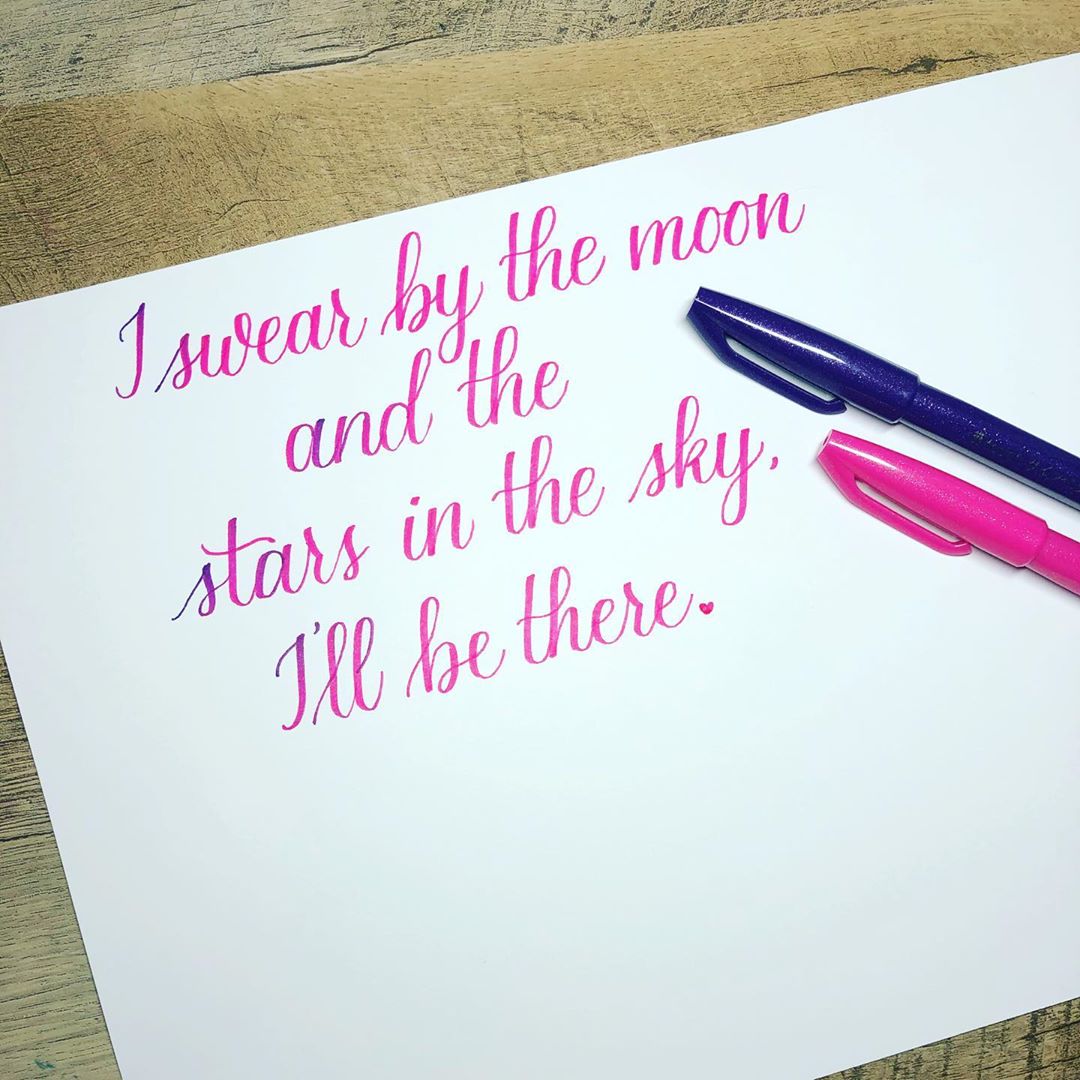 I swear by the moon
and the
stars in the sky,
I'll be there.